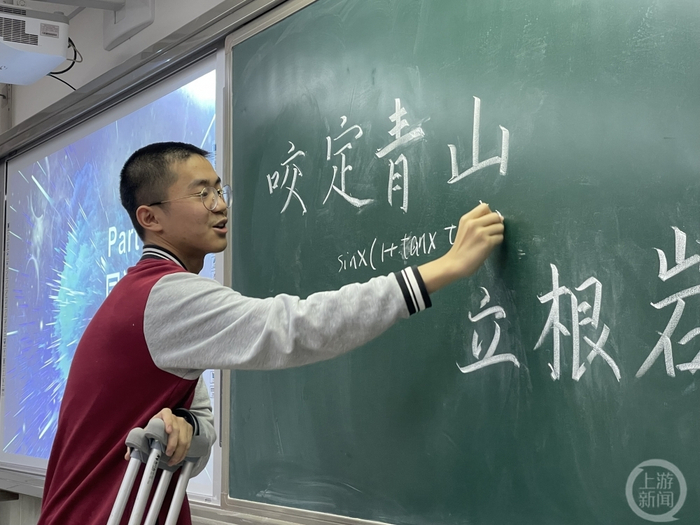 咬定青山
sinx(1+tanx t
立根岩
Part
上游
新闻